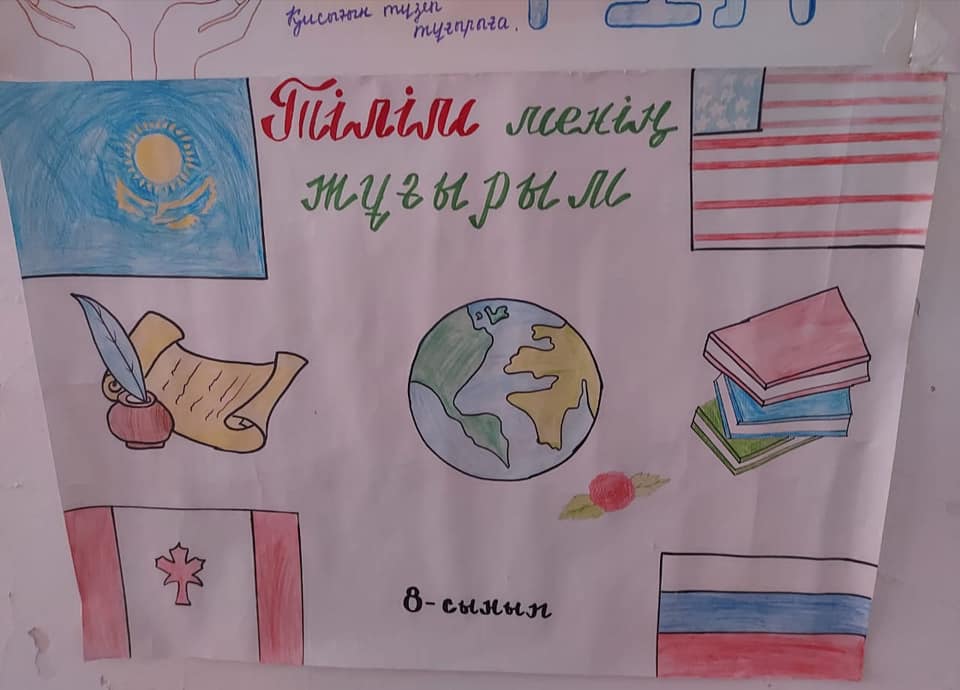 Қисығын түзеп
тұғырыға.
Тілім менің
тұғырым
8-сынып